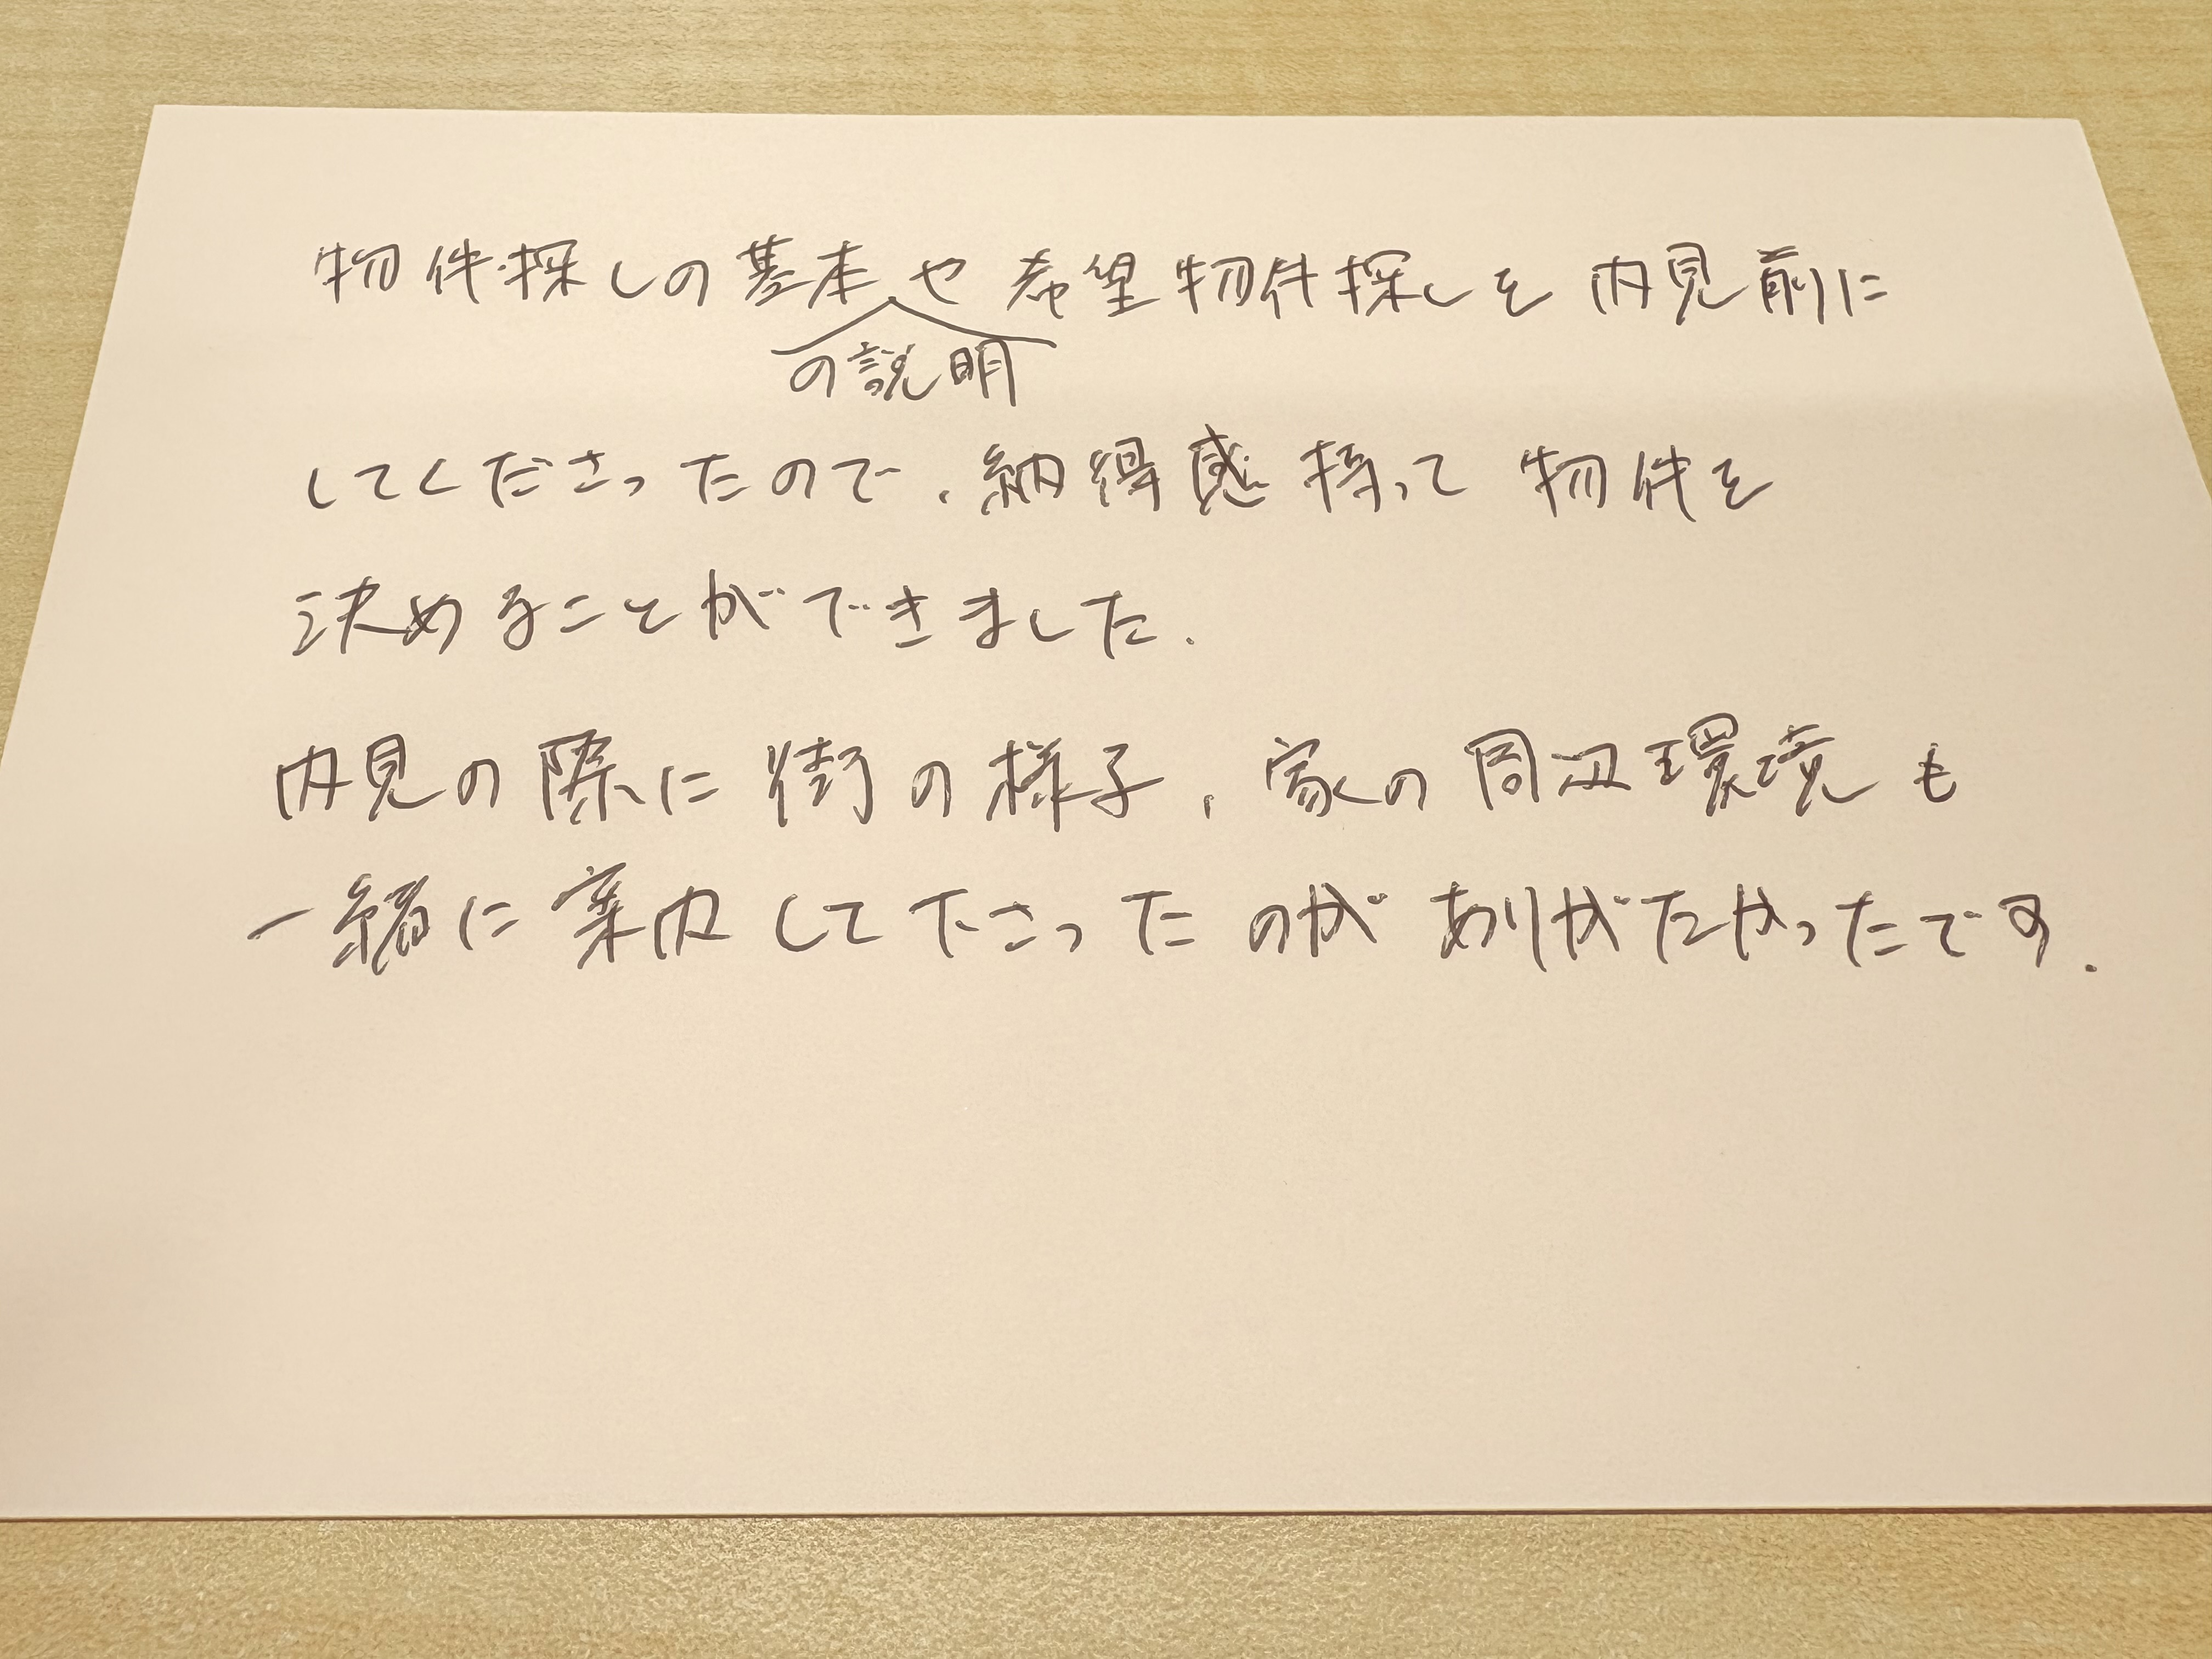 物件探しの基本や希望物件探しを内見前に
の説明
してくださったので、納得感持って物件を
決めることができました.
内見の際に街の様子、家の周辺環境も
一緒に案内して下さったのがありがたかったです.